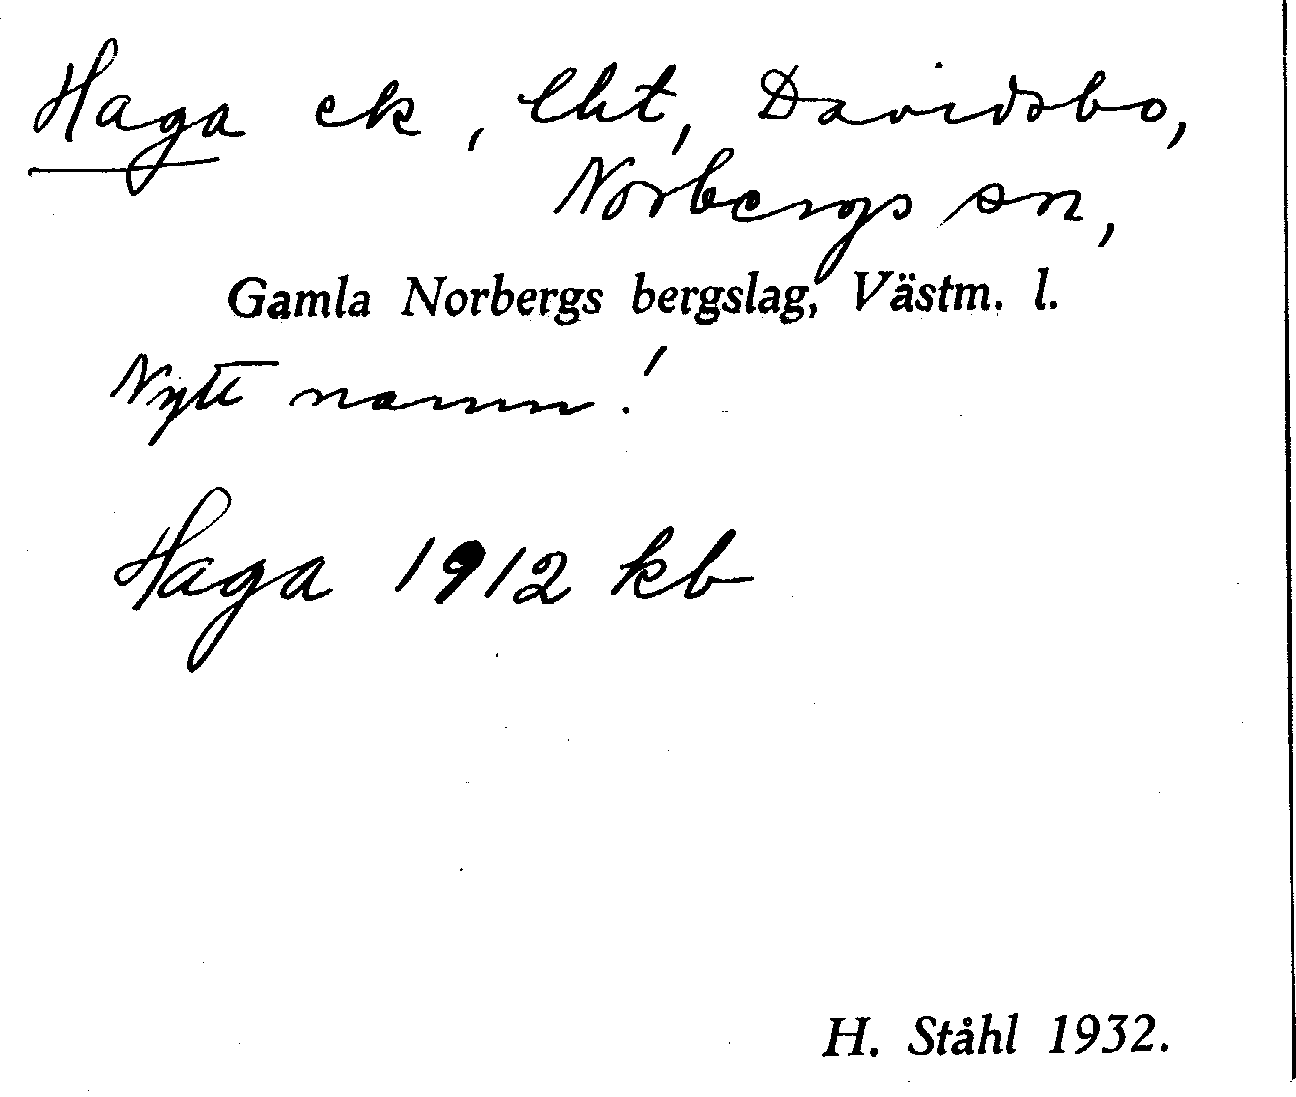 Haga ek, lht, Davidsbo,
Norbergs sn,
Gamla Norbergs bergslag, Västm. l.
Nytt namn!
Haga 1912 kb
H. Ståhl 1932.